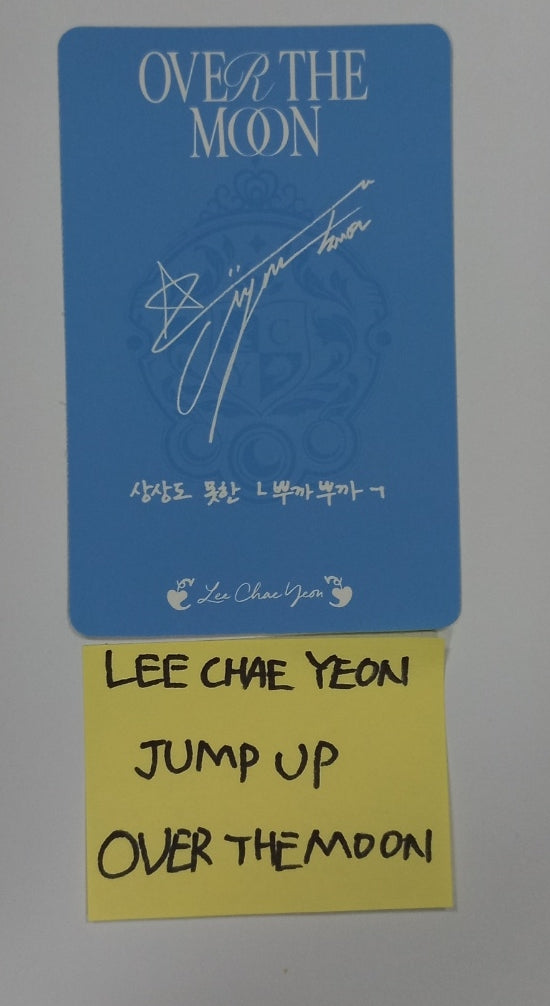 OVER THE
MOON
상상도 못한 ㄴ뿌까뿌까ㄱ
Lee Chae Yeon
LEE CHAE YEON
JUMP UP
OVER THE MOON